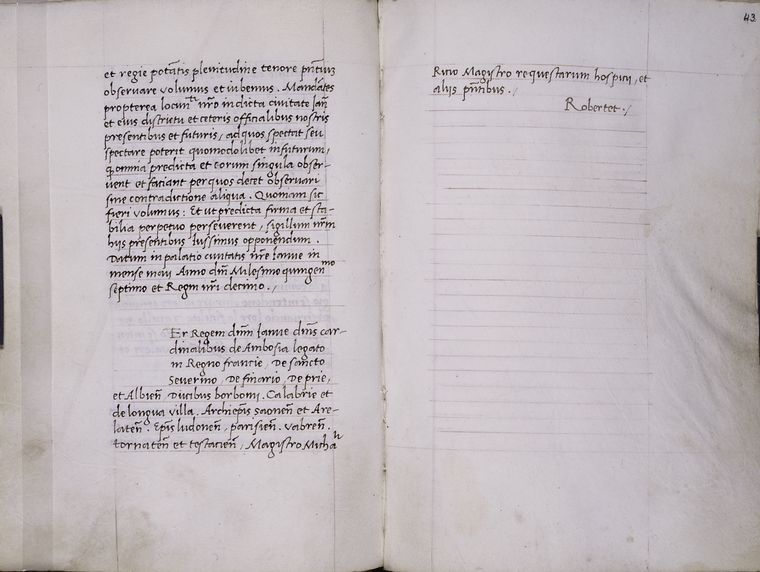 et regie potẽtis plenitudine tenore pñtiuz
observare volumus et iubemus. Mandãtes
propterea locuntti nr̃o in dicta civitate Jañ
et eius districtu et ceteris officialibus nostris
presentibus et futuris, ad quos spectat seu
spectare poterit quomodolibet in futurum,
q̃ omnia predicta et eorum singula obser-
vent et faciant per quos decet observari
sine contradictione aliqua. Quoniam sic
fieri volumus: Et ut predicta firma et sta-
bilia perpetuo perseverent, sigillum nr̃m
hijs presentibus Iussimus opponendum.
Datum in palatio civitatis nr̃e Ianue in
mense maii Anno dñi Milesimo quingenmo
septimo et Regni nr̃i decimo./
Er Regem dñm Ianue dñis car-
dinalibus de Ambosia legato
in Regno francie, De sancto
Severino, De finario, De prie,
et Albieñ Ducibus borboni. Calabrie et
de longua villa. Archiepĩs saoneñ et Are-
lateñ. Epĩs ludoneñ, parisieñ. vabreñ.
tornateñ et testacieñ, Magistro Michale
43
Ricio Magistro requestarum hospicij, et
alijs pñtibus./
Robertet./